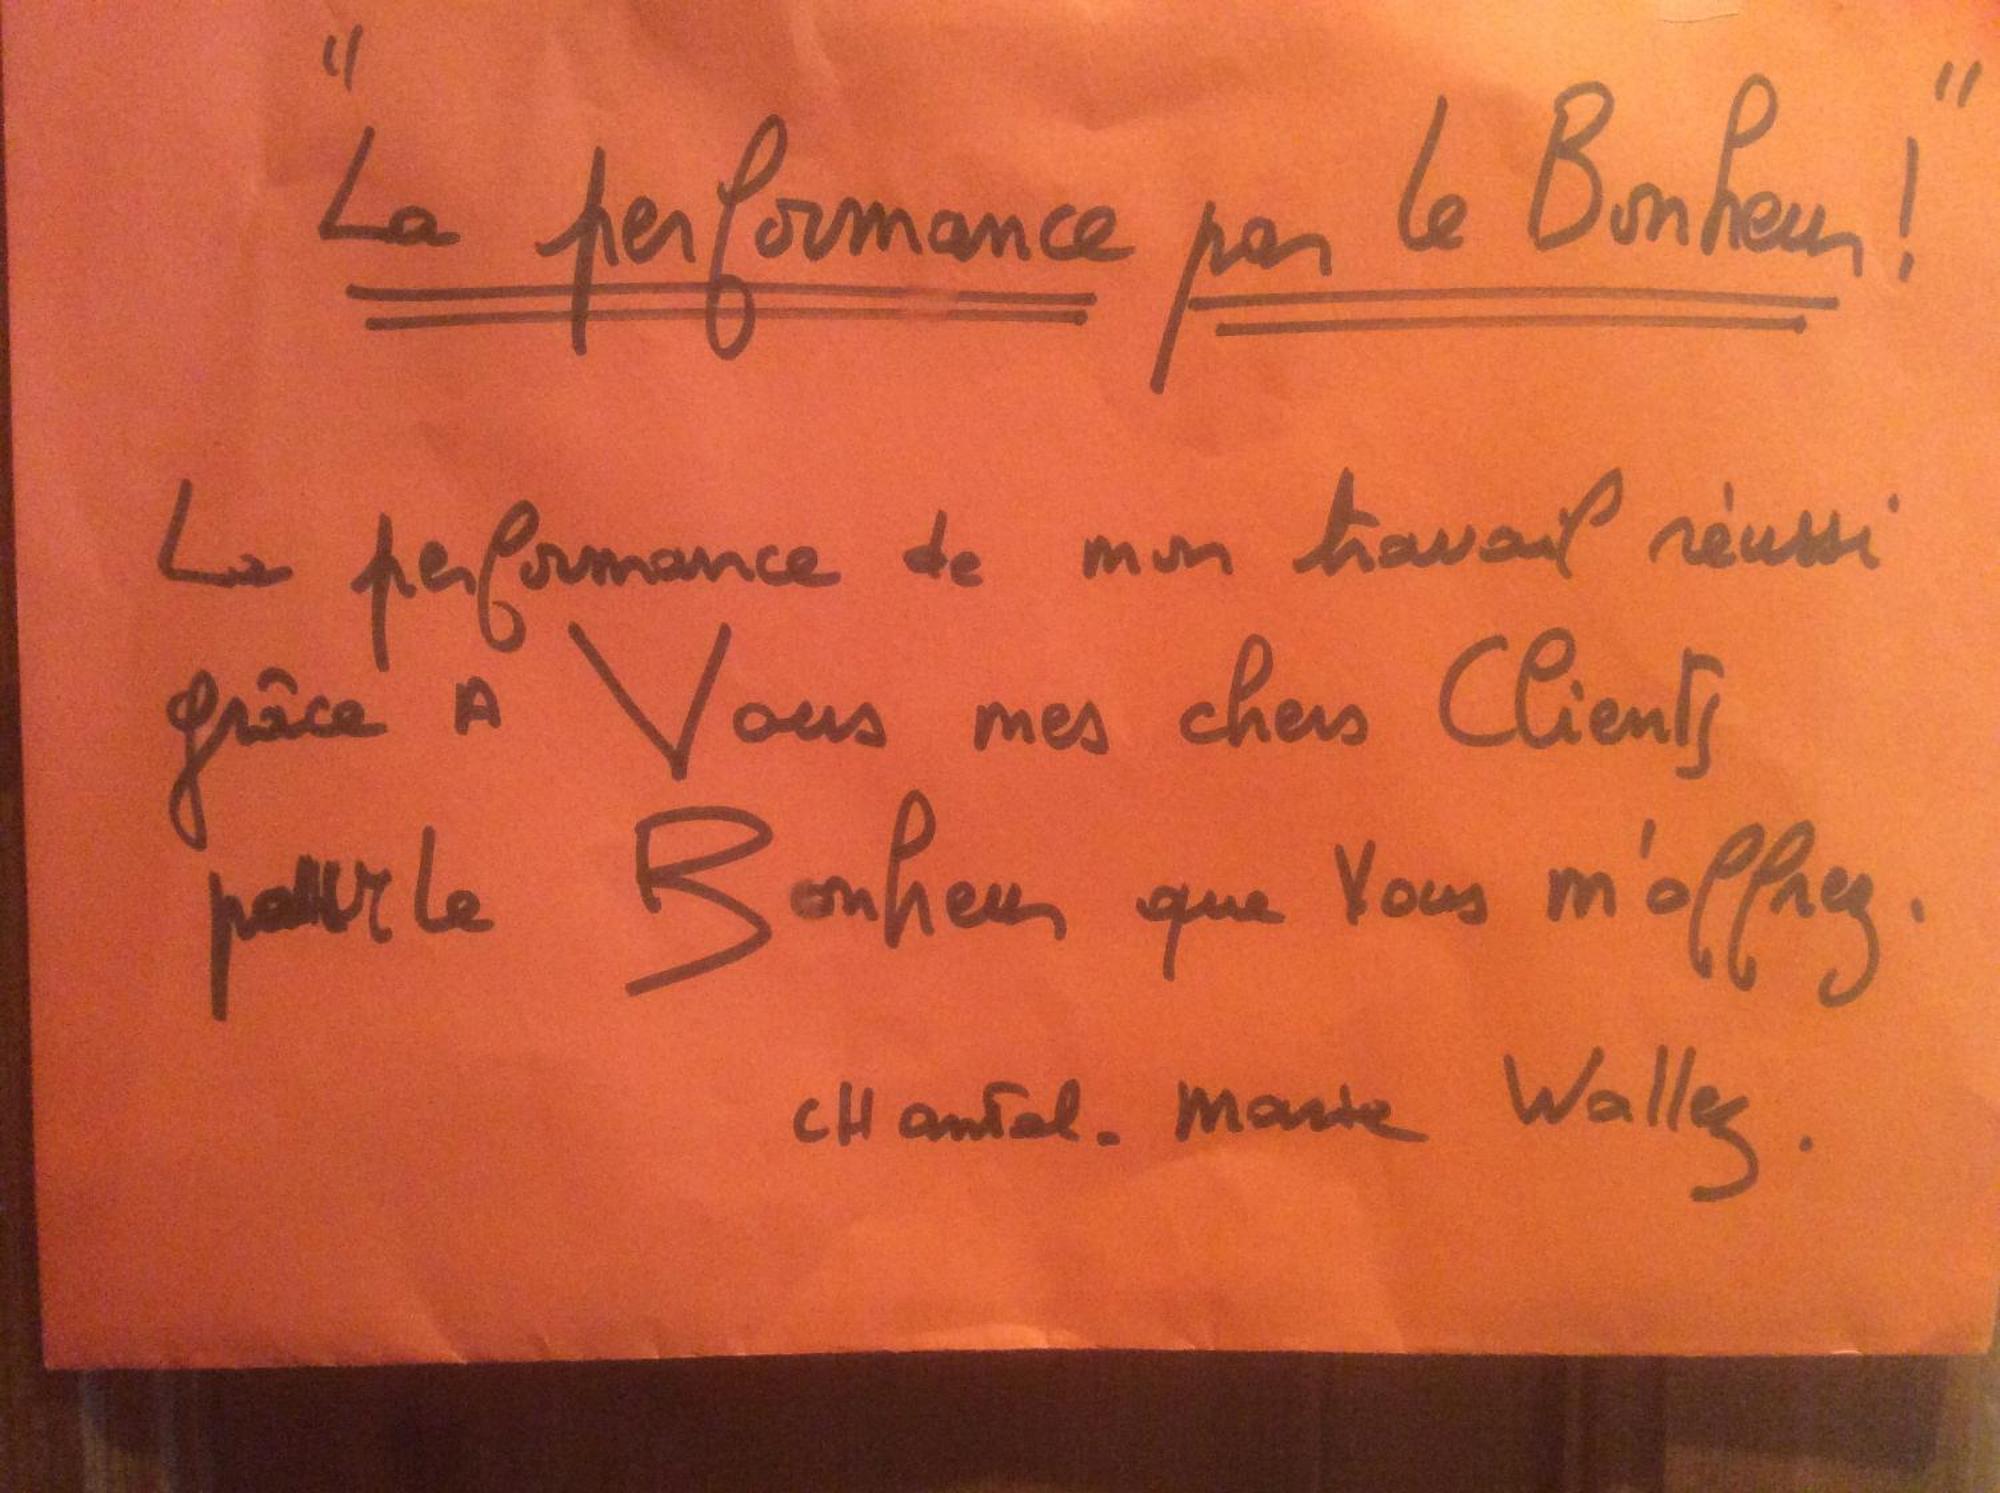 "La performance par le Bonheur!"
La performance de mon travail réussi
grâce A Vous mes chers Clients
pour le Bonheur que Vous m'offrez.
CHantal. Marie Wallez.